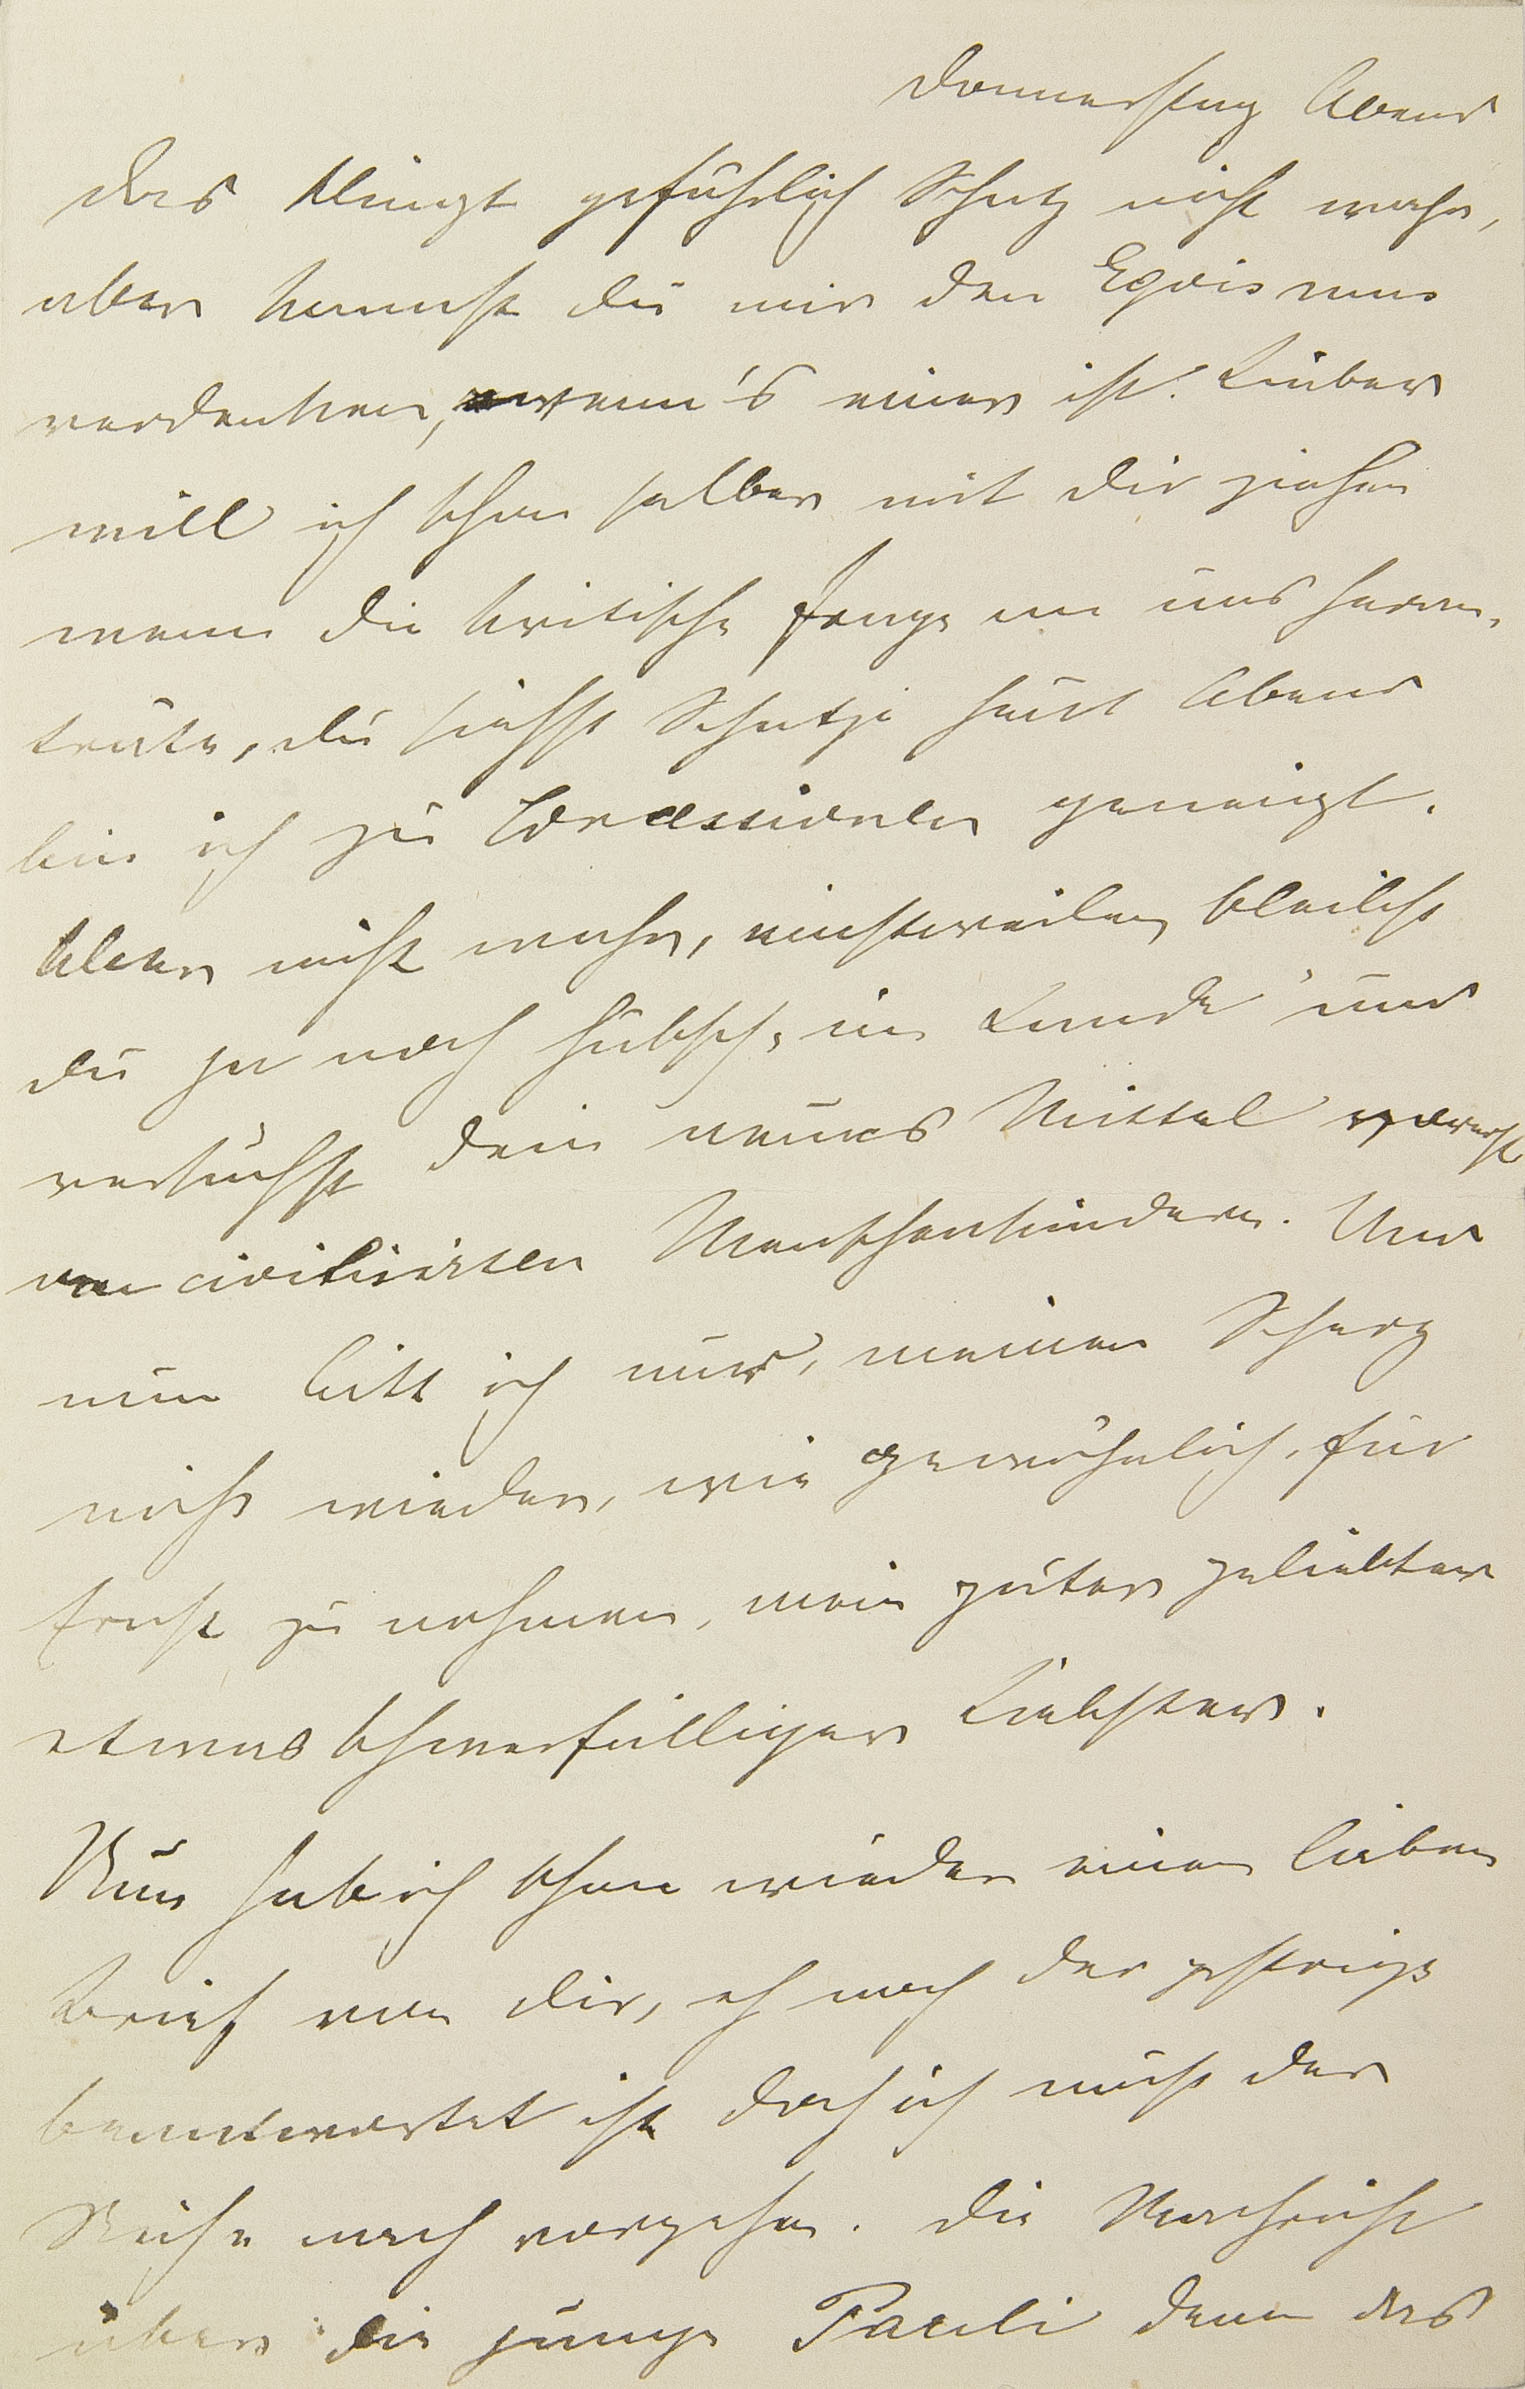 Donnerstag Abend
Das klingt gefährlich Schatz nicht wahr,
aber kannst du mir den Egoismus
verdenken, wenn's einer ist. Lieber
will ich schon selber mit dir ziehen
wenn die kritische Frage an uns heran-
träte, du siehst Schatzi heut Abend
bin ich zu Concessionen geneigt.
Aber nicht wahr, einstweilen bleibst
du ja noch hübsch im Lande und
versuchst dein neues Mittel vorerst
an civilisirten Menschenkindern. Und
nun bitt ich nur, meinen Scherz
nicht wieder, wie gewöhnlich, für
Ernst zu nehmen, mein guter geliebter
etwas schwerfälliger Liebster.
Nun hab ich schon wieder einen lieben
Brief von dir, eh noch der gestrige
beantwortet ist doch ich muß der
Reihe nach vorgehen. Die Nachricht
über die junge Pauli denn das